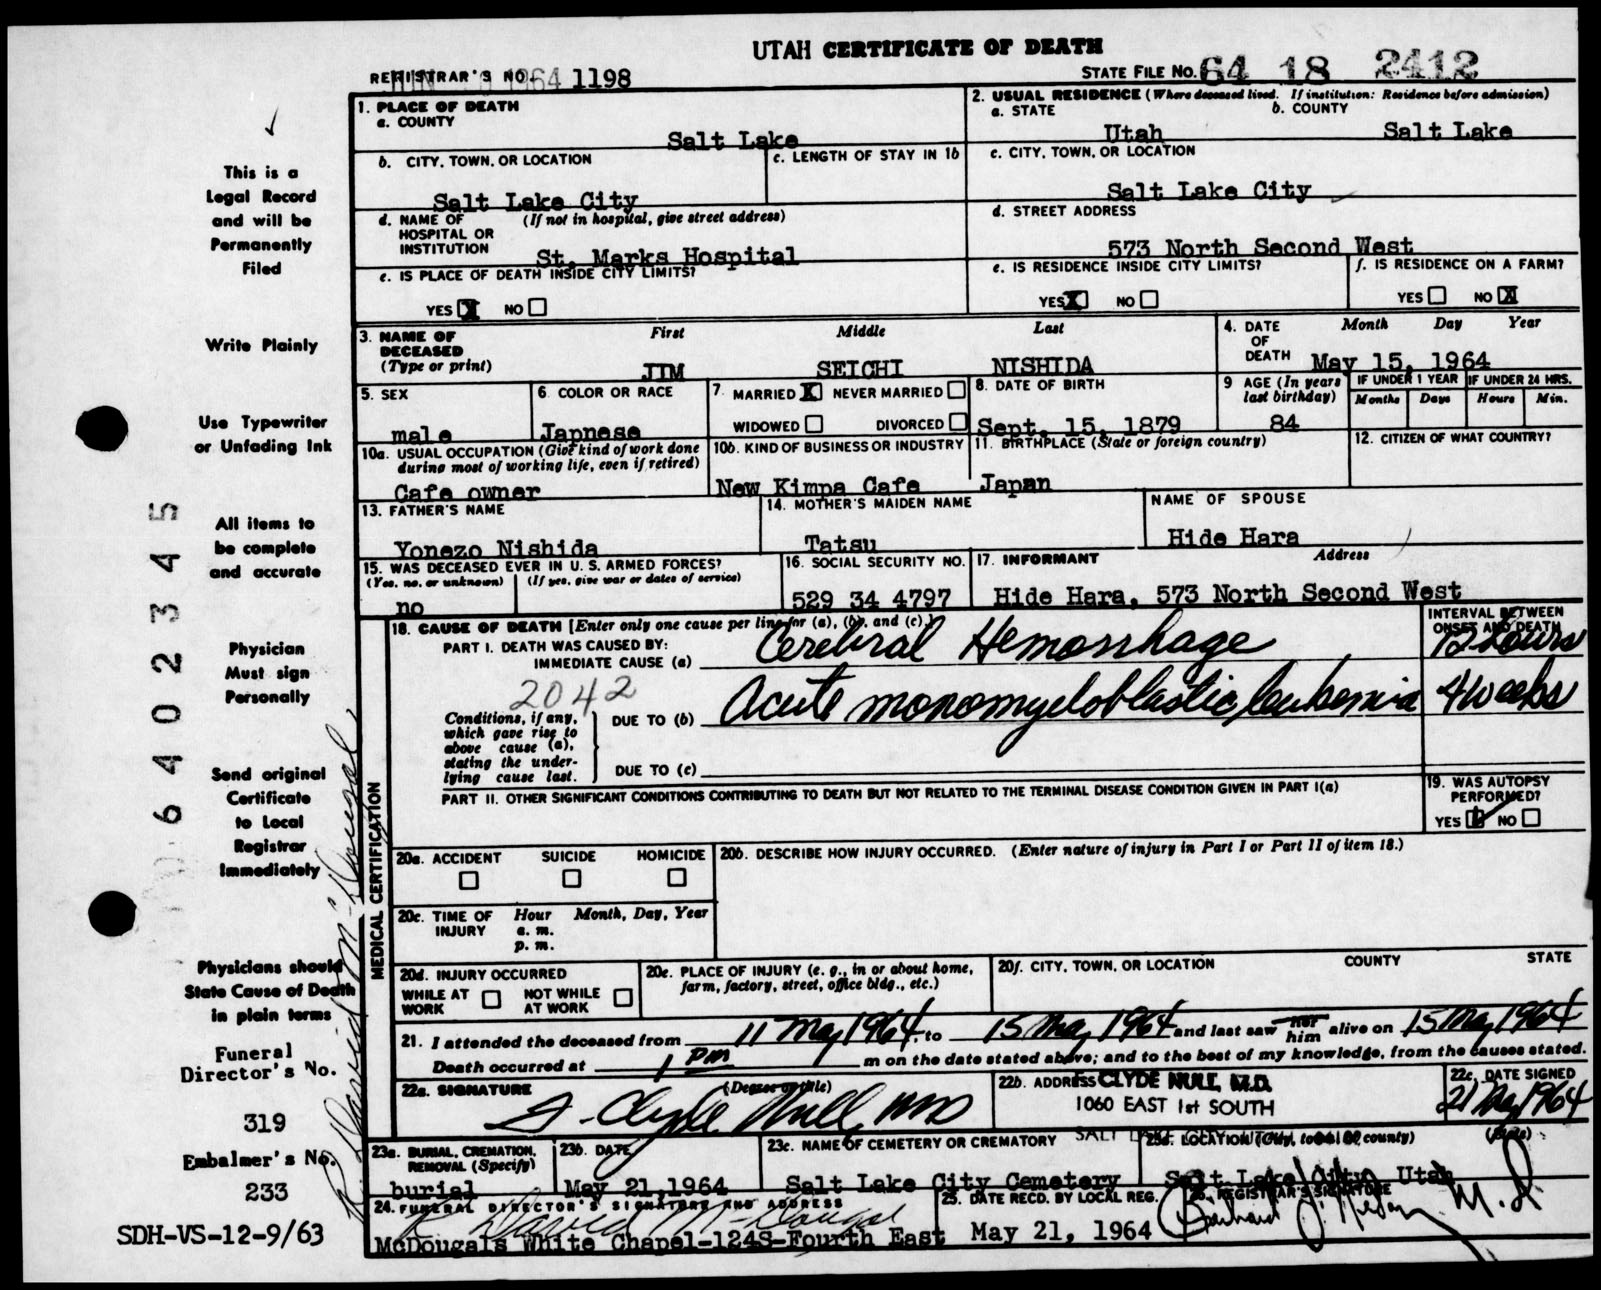 UTAH CERTIFICATE OF DEATH
REGISTRAR'S NO. 1964 1198
STATE FILE NO. 64 18 2412
1. PLACE OF DEATH
a. COUNTY
Salt Lake
2. USUAL RESIDENCE (Where deceased lived. If institution: Residence before admission)
a. STATE b. COUNTY
Utah Salt Lake
b. CITY, TOWN, OR LOCATION
Salt Lake City
c. LENGTH OF STAY IN 1b
c. CITY, TOWN, OR LOCATION
Salt Lake City
d. NAME OF HOSPITAL OR INSTITUTION (If not in hospital, give street address)
St. Marks Hospital
d. STREET ADDRESS
573 North Second West
e. IS PLACE OF DEATH INSIDE CITY LIMITS?
YES X NO
e. IS RESIDENCE INSIDE CITY LIMITS?
YES X NO
f. IS RESIDENCE ON A FARM?
YES NO X
3. NAME OF DECEASED (Type or print)
First Middle Last
JIM SEICHI NISHIDA
4. DATE OF DEATH
Month Day Year
May 15, 1964
5. SEX
male
6. COLOR OR RACE
Japnese
7. MARRIED X NEVER MARRIED
WIDOWED DIVORCED
8. DATE OF BIRTH
Sept. 15, 1879
9 AGE (In years last birthday)
84
IF UNDER 1 YEAR
Months Days
IF UNDER 24 HRS.
Hours Min.
10a. USUAL OCCUPATION (Give kind of work done during most of working life, even if retired)
Cafe owner
10b. KIND OF BUSINESS OR INDUSTRY
New Kimpa Cafe
11. BIRTHPLACE (State or foreign country)
Japan
12. CITIZEN OF WHAT COUNTRY?
13. FATHER'S NAME
Yonezo Nishida
14. MOTHER'S MAIDEN NAME
Tatsu
NAME OF SPOUSE
Hide Hara
15. WAS DECEASED EVER IN U. S. ARMED FORCES?
(Yes, no, or unknown) (If yes, give war or dates of service)
no
16. SOCIAL SECURITY NO.
529 34 4797
17. INFORMANT Address
Hide Hara, 573 North Second West
MEDICAL CERTIFICATION
18. CAUSE OF DEATH [Enter only one cause per line for (a), (b), and (c).]
PART I. DEATH WAS CAUSED BY:
IMMEDIATE CAUSE (a) Cerebral Hemorrhage
INTERVAL BETWEEN ONSET AND DEATH
12 hours
2042
Conditions, if any, which gave rise to above cause (a), stating the underlying cause last.
DUE TO (b) Acute monomyeloblastic leukemia 4 weeks
DUE TO (c)
PART II. OTHER SIGNIFICANT CONDITIONS CONTRIBUTING TO DEATH BUT NOT RELATED TO THE TERMINAL DISEASE CONDITION GIVEN IN PART I(a)
19. WAS AUTOPSY PERFORMED?
YES NO
20a. ACCIDENT SUICIDE HOMICIDE
20b. DESCRIBE HOW INJURY OCCURRED. (Enter nature of injury in Part I or Part II of item 18.)
20c. TIME OF INJURY Hour Month, Day, Year
a. m.
p. m.
20d. INJURY OCCURRED
WHILE AT WORK NOT WHILE AT WORK
20e. PLACE OF INJURY (e. g., in or about home, farm, factory, street, office bldg., etc.)
20f. CITY, TOWN, OR LOCATION COUNTY STATE
21. I attended the deceased from 11 May 1964, to 15 May 1964 and last saw her him alive on 15 May 1964
Death occurred at 1 PM m on the date stated above; and to the best of my knowledge, from the causes stated.
22a. SIGNATURE (Degree or title)
J. Clyde Null MD
22b. ADDRESS CLYDE NULL, M.D.
1060 EAST 1st SOUTH
SALT LAKE
22c. DATE SIGNED
21 May 1964
23a. BURIAL, CREMATION, REMOVAL (Specify)
burial
23b. DATE
May 21, 1964
23c. NAME OF CEMETERY OR CREMATORY
Salt Lake City Cemetery
23d. LOCATION (City, town, or county) (State)
Salt Lake City, Utah
24. FUNERAL DIRECTOR'S SIGNATURE AND ADDRESS
R. David McDougal
McDougals White Chapel-124S-Fourth East
25. DATE RECD. BY LOCAL REG.
May 21, 1964
26. REGISTRAR'S SIGNATURE
M.D
This is a
Legal Record
and will be
Permanently
Filed
Write Plainly
Use Typewriter
or Unfading Ink
All items to
be complete
and accurate
Physician
Must sign
Personally
Send original
Certificate
to Local
Registrar
Immediately
Physicians should
State Cause of Death
in plain terms
Funeral
Director's No.
319
Embalmer's No.
233
SDH-VS-12-9/63
6402345
R. David McDougal